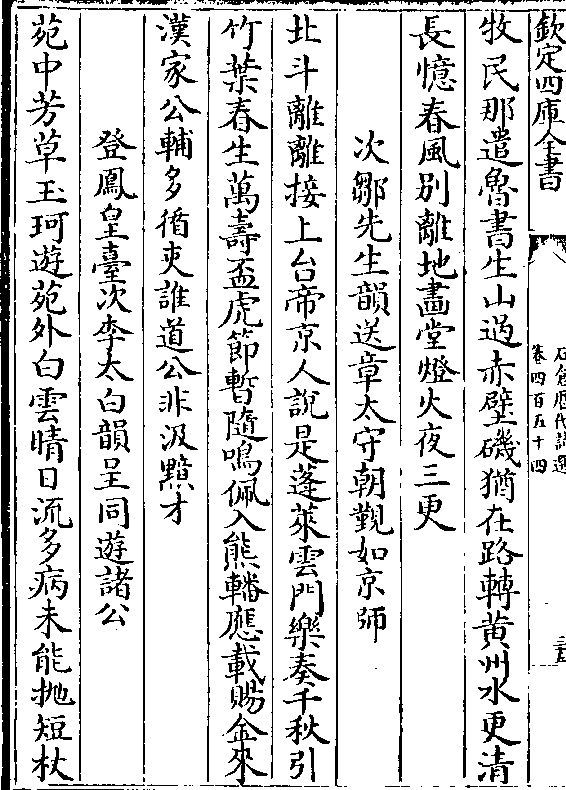 欽定四庫全書
石倉歷代詩選
卷四百五十四
三五
牧民那遣魯書生山過赤壁磯猶在路轉黃州水更清
長憶春風別離地畵堂燈火夜三更
次鄒先生韻送章太守朝覲如京師
北斗離離接上台帝京人說是蓬萊雲門樂奏千秋引
竹葉春生萬壽盃虎節暫隨鳴佩入熊轓應載賜金來
漢家公輔多循吏誰道公非汲黯才
登鳳皇臺次李太白韻呈同遊諸公
苑中芳草玉珂遊苑外白雲晴日流多病未能抛短杖